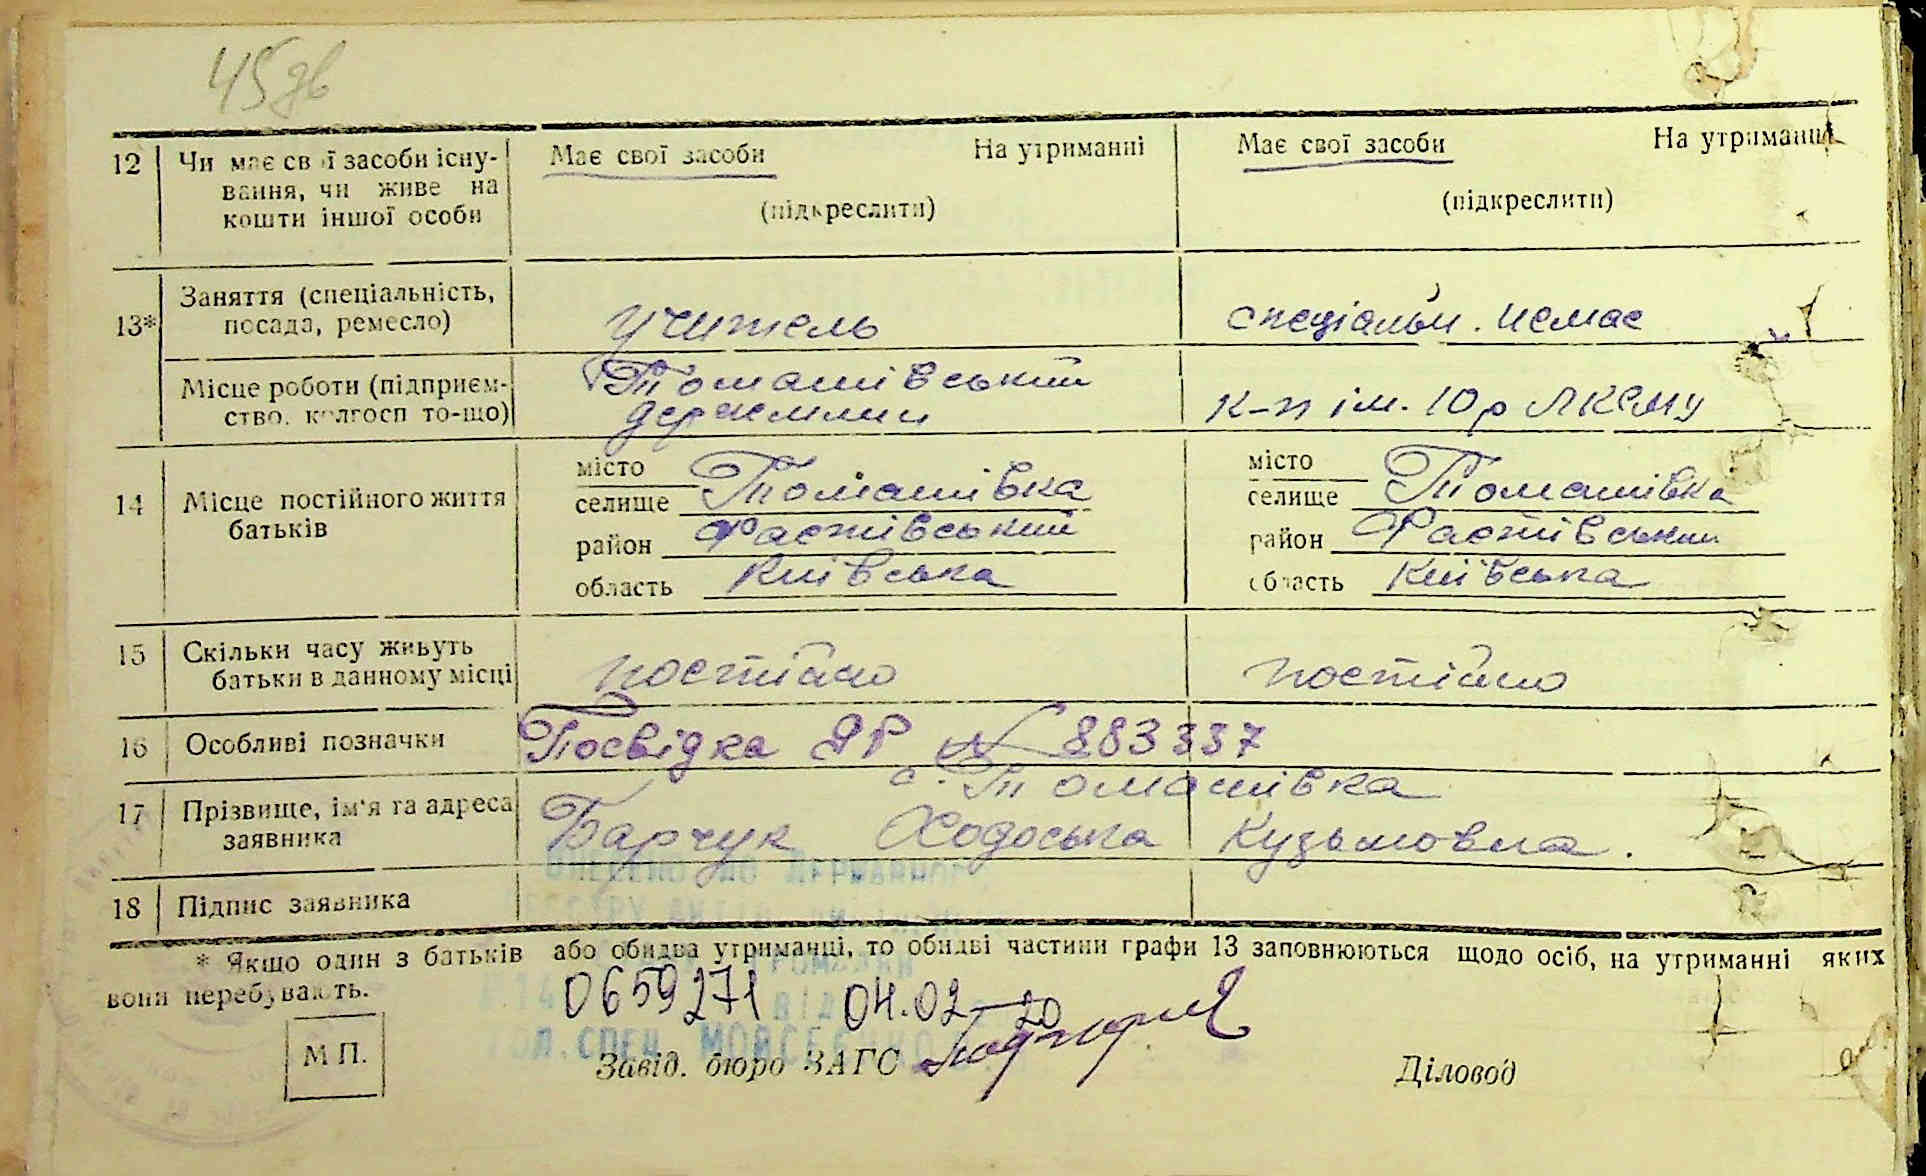 45 зв
12 Чи має свої засоби існу- Має свої засоби На утриманні Має свої засоби На утриманні
вання, чи живе на
кошти іншої особи (підкреслити) (підкреслити)
13* Заняття (спеціальність,
посада, ремесло) учитель спеціальн. немає
Місце роботи (підприєм- Томашівський
ство, колгосп то-що) к-п ім. 10 р ЛКСМУ
місто місто
14 Місце постійного життя селище Томашівка селище Томашівка
батьків район Фастівський район Фастівський
область Київська область Київська
15 Скільки часу живуть
батьки в данному місці постійно постійно
16 Особливі позначки Посвідка ЯР № 883337
с. Томашівка
17 Прізвище, ім'я та адреса
заявника Барчук Ходоська Кузьмовна.
ВНЕСЕНО ДО ДЕРЖАВНОГО
18 Підпис заявника
РЕЄСТРУ АКТІВ
* Якщо один з батьків або обидва утриманці, то обидві частини графи 13 заповнюються щодо осіб, на утриманні яких
ГРОМАДЯН
вони перебувають.
0659271 ВІД 04.02-20
ГОЛ. СПЕЦ. МОЙСЕЄНКО
М П. Завід. бюро ЗАГС Діловод